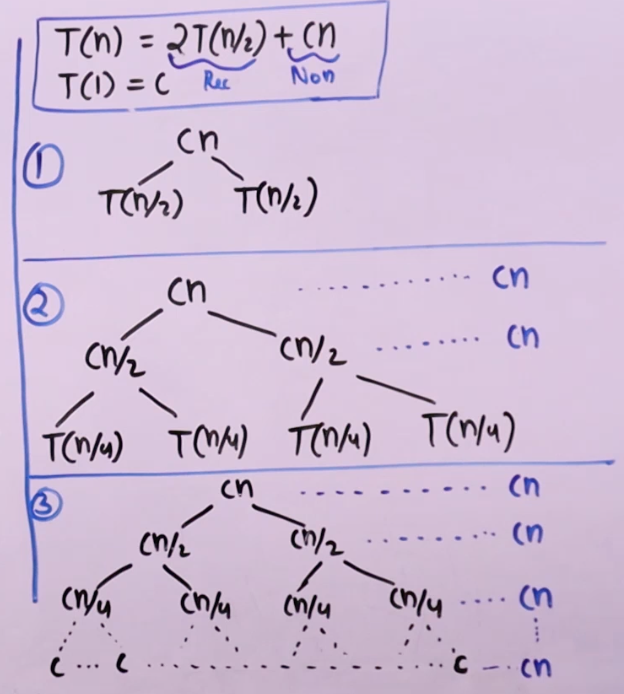 T(n) = 2T(n/2) + cn
T(1) = C Rec Non
1
cn
T(n/2) T(n/2)
2
cn ................ cn
cn/2 cn/2 ......... cn
T(n/4) T(n/4) T(n/4) T(n/4)
3
cn ............ cn
cn/2 cn/2 ............ cn
cn/4 cn/4 cn/4 cn/4 .... cn
c ... c ........................ c -- cn